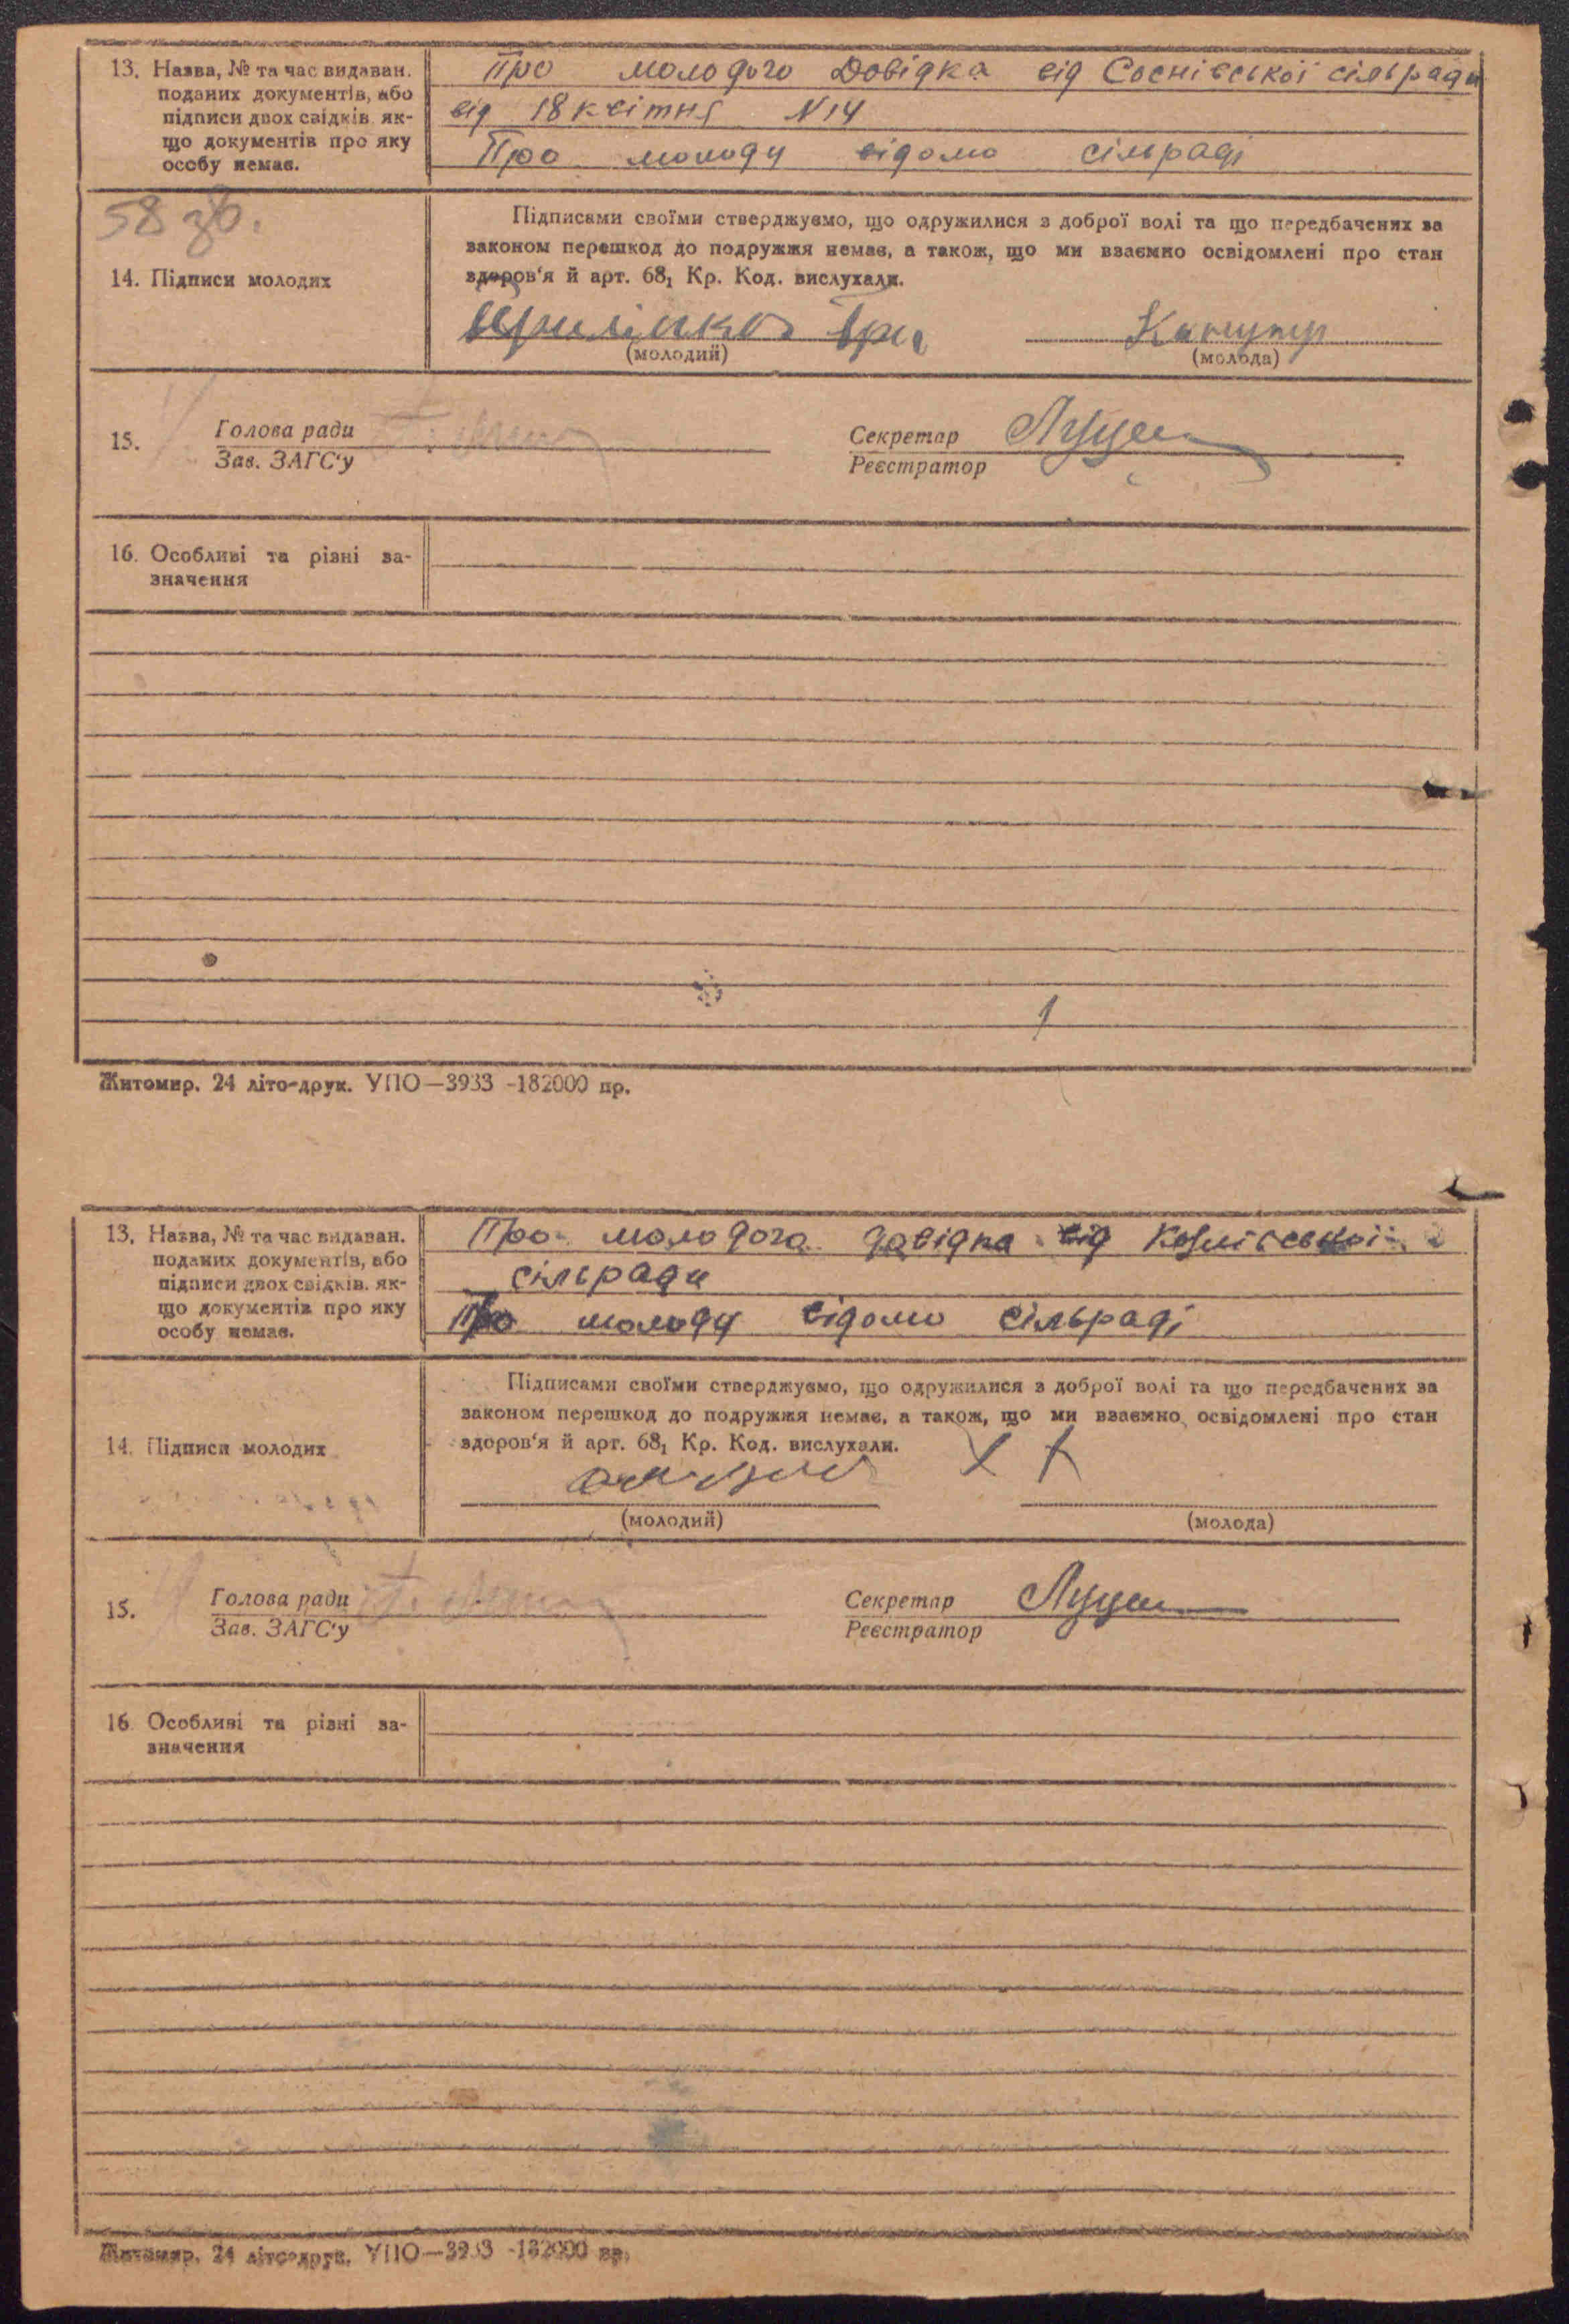 13. Назва, № та час видаван.
поданих документів, або
підписи двох свідків як-
що документів про яку
особу немає.
Про молодого Довідка від Соснівської сільради
від 18 квітня N 14
Про молоду відомо сільраді
58 зв.
14. Підписи молодих
Підписами своїми стверджуємо, що одружилися з доброї волі та що передбачених за
законом перешкод до подружжя немає, а також, що ми взаємно освідомлені про стан
здоров'я й арт. 68₁ Кр. Код. вислухали.
(молодий) (молода)
15. Голова ради
Зав. ЗАГС'у
Секретар
Реєстратор
16. Особливі та різні за-
значення
1
Житомир. 24 літо-друк. УПО—3933 -182000 пр.
13. Назва, № та час видаван.
поданих документів, або
підписи двох свідків. як-
що документів про яку
особу немає.
Про молодого довідка від
сільради
Про молоду відомо сільраді
14. Підписи молодих
Підписами своїми стверджуємо, що одружилися з доброї волі та що передбачених за
законом перешкод до подружжя немає, а також, що ми взаємно освідомлені про стан
здоров'я й арт. 68₁ Кр. Код. вислухали.
(молодий) (молода)
15. Голова ради
Зав. ЗАГС'у
Секретар
Реєстратор
16. Особливі та різні за-
значення
Житомир. 24 літо-друк. УПО—3933 -182000 пр.